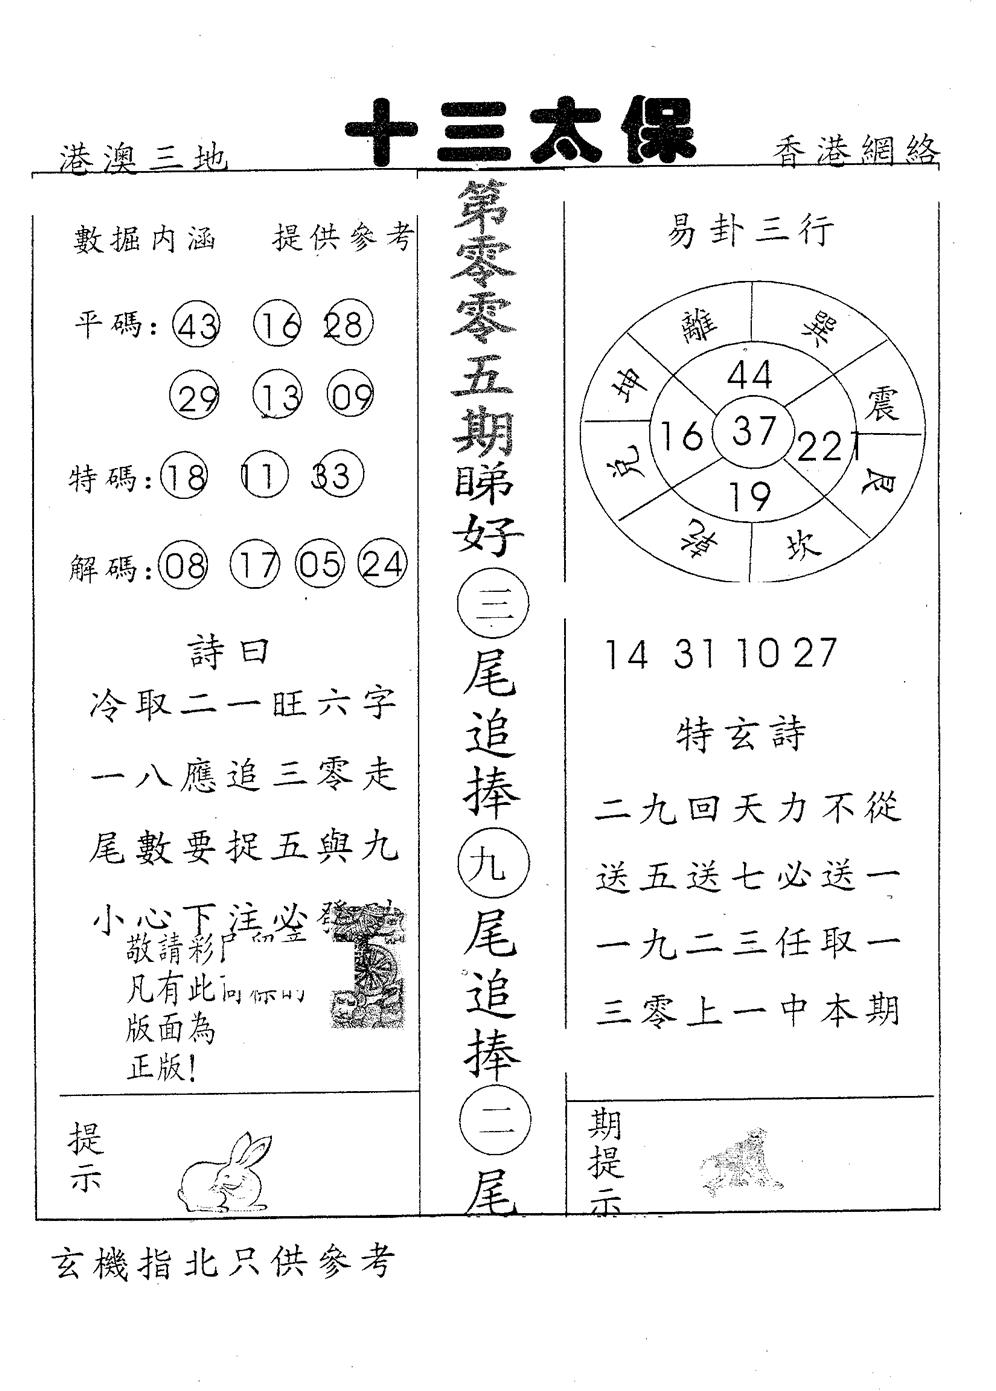 十三太保
港澳三地
香港網絡
數掘内涵 提供參考
平碼: 43 16 28
29 13 09
特碼: 18 11 33
解碼: 08 17 05 24
詩曰
冷取二一旺六字
一八應追三零走
尾數要捉五與九
小心下注必發
敬請彩
凡有此
版面為
正版!
提示
第零零五期睇好三尾追捧九尾追捧二尾
易卦三行
離 巽
坤 震
兌 艮
乾 坎
44
16 37 221
19
14 31 10 27
特玄詩
二九回天力不從
送五送七必送一
一九二三任取一
三零上一中本期
期提示
玄機指北只供參考